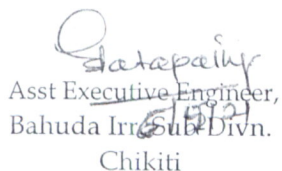 Asst Executive Engineer,
Bahuda Irr. Sub-Divn.
Chikiti